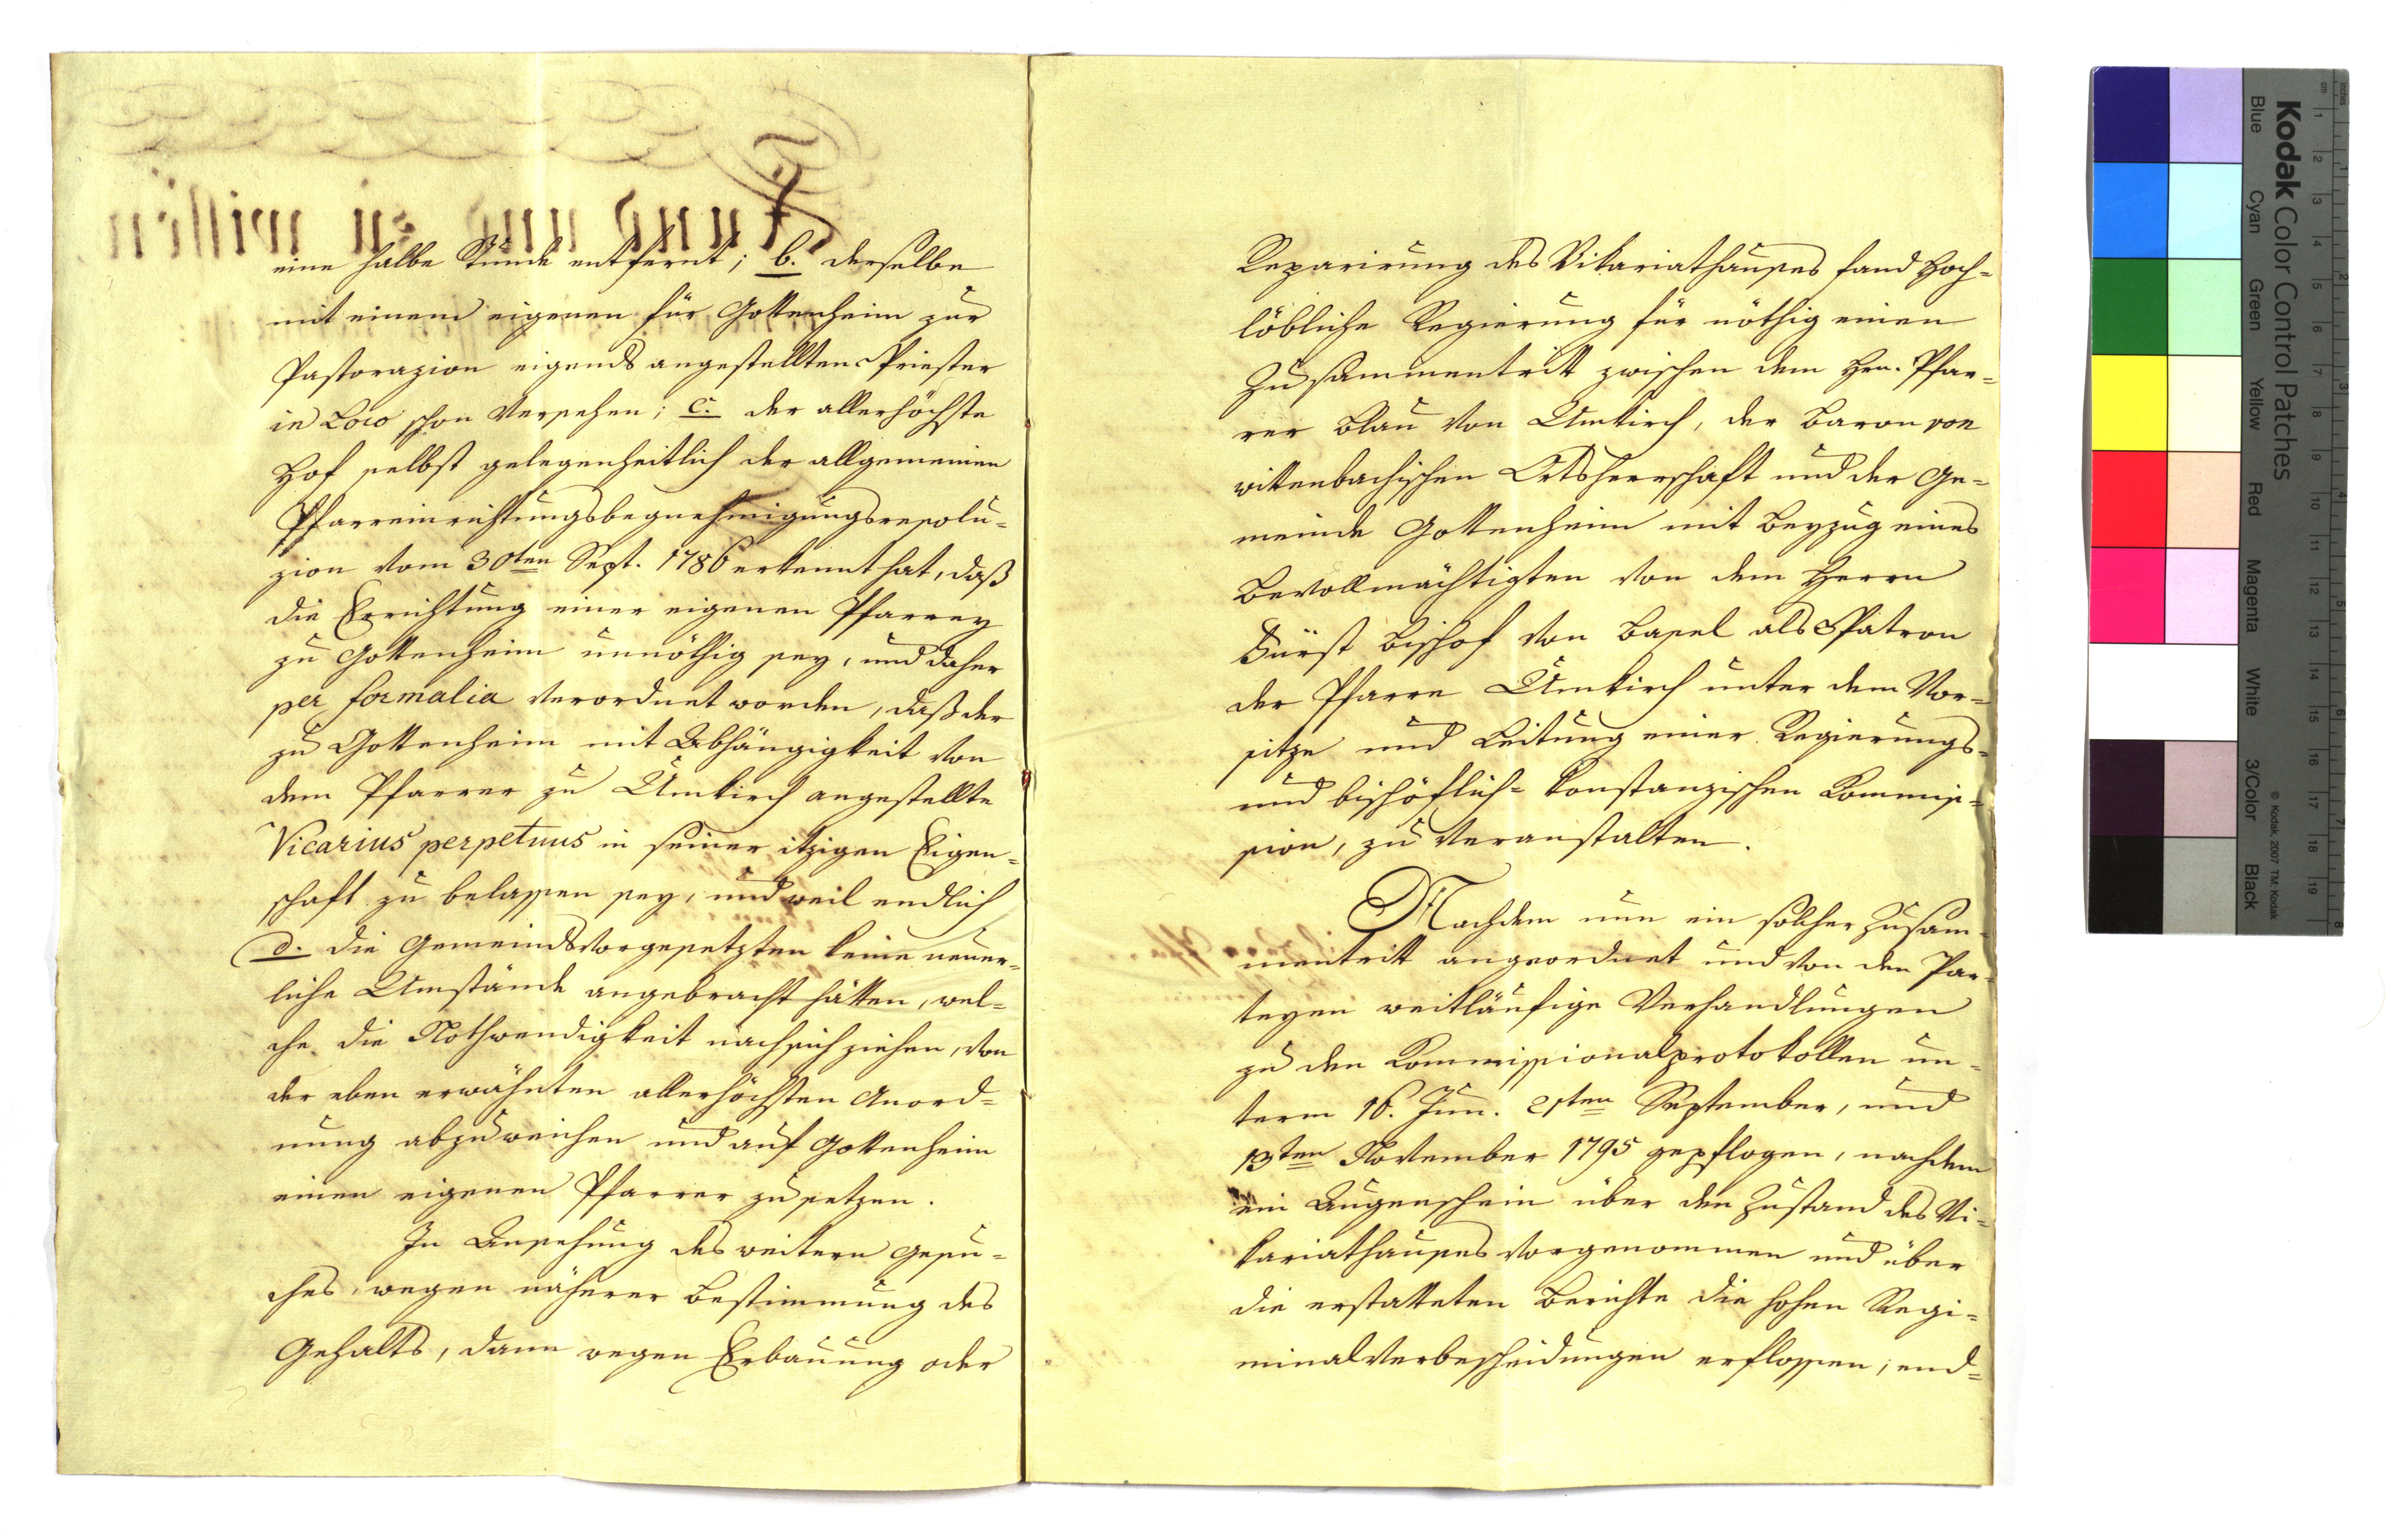 eine halbe Stunde entfernt; b. derselbe
mit einem eigenen für Gottenheim zur
Pastorazion eigends angestellten Priester
in Loco schon versehen; c. der allerhöchste
Hof selbst gelegenheitlich der allgemeinen
Pfarreinrichtungsbegnehmigungsresolu-
zion vom 30ten Sept. 1786 erkennt hat, daß
die Errichtung einer eigenen Pfarrey
zu Gottenheim unnöthig sey, und daher
per formalia verordnet worden, daß der
zu Gottenheim mit Abhängigkeit von
dem Pfarrer zu Umkirch angestellte
Vicarius perpetuus in seiner itzigen Eigen-
schaft zu belassen sey, und weil endlich
d. die Gemeindsvorgesetzten keine neuer-
liche Umstände angebracht hätten, wel-
che die Nothwendigkeit nach sich ziehen, von
der eben erwähnten allerhöchsten Anord=
nung abzuweichen und auf Gottenheim
einen eigenen Pfarrer zu setzen.
In Ansehung des weitern Gesu-
ches, wegen näherer Bestimmung des
Gehalts, dann wegen Erbauung oder
Reparirung des Vikariathauses fand Hoch=
löbliche Regierung für nöthig einen
Zusammentritt zwischen dem Hrn. Pfar=
rer Blau von Umkirch, der Baron von
wittenbachischen Ortsherrschaft und der Ge=
meinde Gottenheim mit Beyzug eines
Bevollmächtigten von dem Herrn
Fürst Bischof von Basel als Patron
der Pfarre Umkirch unter dem Vor=
sitze und Leitung einer Regierungs=
und bischöflich= konstanzischen Kommis=
sion, zu veranstalten.
Nachdem nun ein solcher Zusam-
mentritt angeordnet und von den Par-
teyen weitläufige Verhandlungen
zu den Kommissionalprotokollen un-
term 16. Jun. 21ten September, und
13ten November 1795 gepflogen, nachdem
ein Augenschein über den Zustand des Vi=
kariathauses vorgenommen und über
die erstatteten Berichte die hohen Regi=
minalverbescheidungen erflossen; end=
Kodak Color Control Patches
Blue Cyan Green Yellow Red Magenta White 3/Color Black
© Kodak, 2007 TM: Kodak
inches 1 2 3 4 5 6 7 8
cm 1 2 3 4 5 6 7 8 9 10 11 12 13 14 15 16 17 18 19